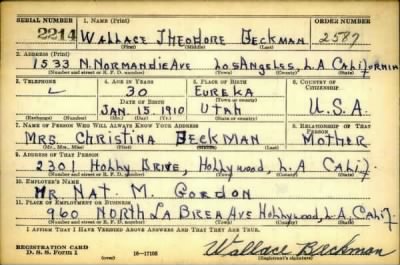 SERIAL NUMBER 1. NAME (Print) ORDER NUMBER
2214 WALLACE THEODORE BECKMAN 2587
(First) (Middle) (Last)
2. ADDRESS (Print)
1533 N. NORMANDIE AVE LOS ANGELES, L.A CALIFORNIA
(Number and street or R. F. D. number) (Town) (County) (State)
3. TELEPHONE 4. AGE IN YEARS 5. PLACE OF BIRTH 6. COUNTRY OF CITIZENSHIP
30 EUREKA
DATE OF BIRTH (Town or county)
JAN. 15. 1910 Utah U.S.A.
(Exchange) (Number) (Mo.) (Day) (Yr.) (State or country)
7. NAME OF PERSON WHO WILL ALWAYS KNOW YOUR ADDRESS 8. RELATIONSHIP OF THAT PERSON
MRS CHRISTINA BECKMAN MOTHER
(Mr., Mrs., Miss) (First) (Middle) (Last)
9. ADDRESS OF THAT PERSON
2301 HOLLY DRIVE, HOLLYWOOD, L.A CALIF.
(Number and street or R. F. D. number) (Town) (County) (State)
10. EMPLOYER'S NAME
MR. NAT. M. GORDON
11. PLACE OF EMPLOYMENT OR BUSINESS
960 NORTH LA BREA AVE HOLLYWOOD, L.A. CALIF.
(Number and street or R. F. D. number) (Town) (County) (State)
I AFFIRM THAT I HAVE VERIFIED ABOVE ANSWERS AND THAT THEY ARE TRUE.
REGISTRATION CARD
D. S. S. FORM 1 16-17105 Wallace Beckman